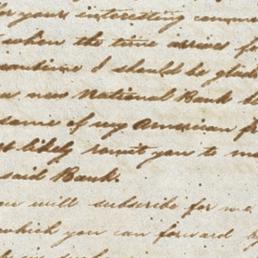 your interesting commu
when the time arrives fo
I should be glad
new National Bank
some of my American fr
likely want you to
said Bank.
will subscribe for me
which you can forward